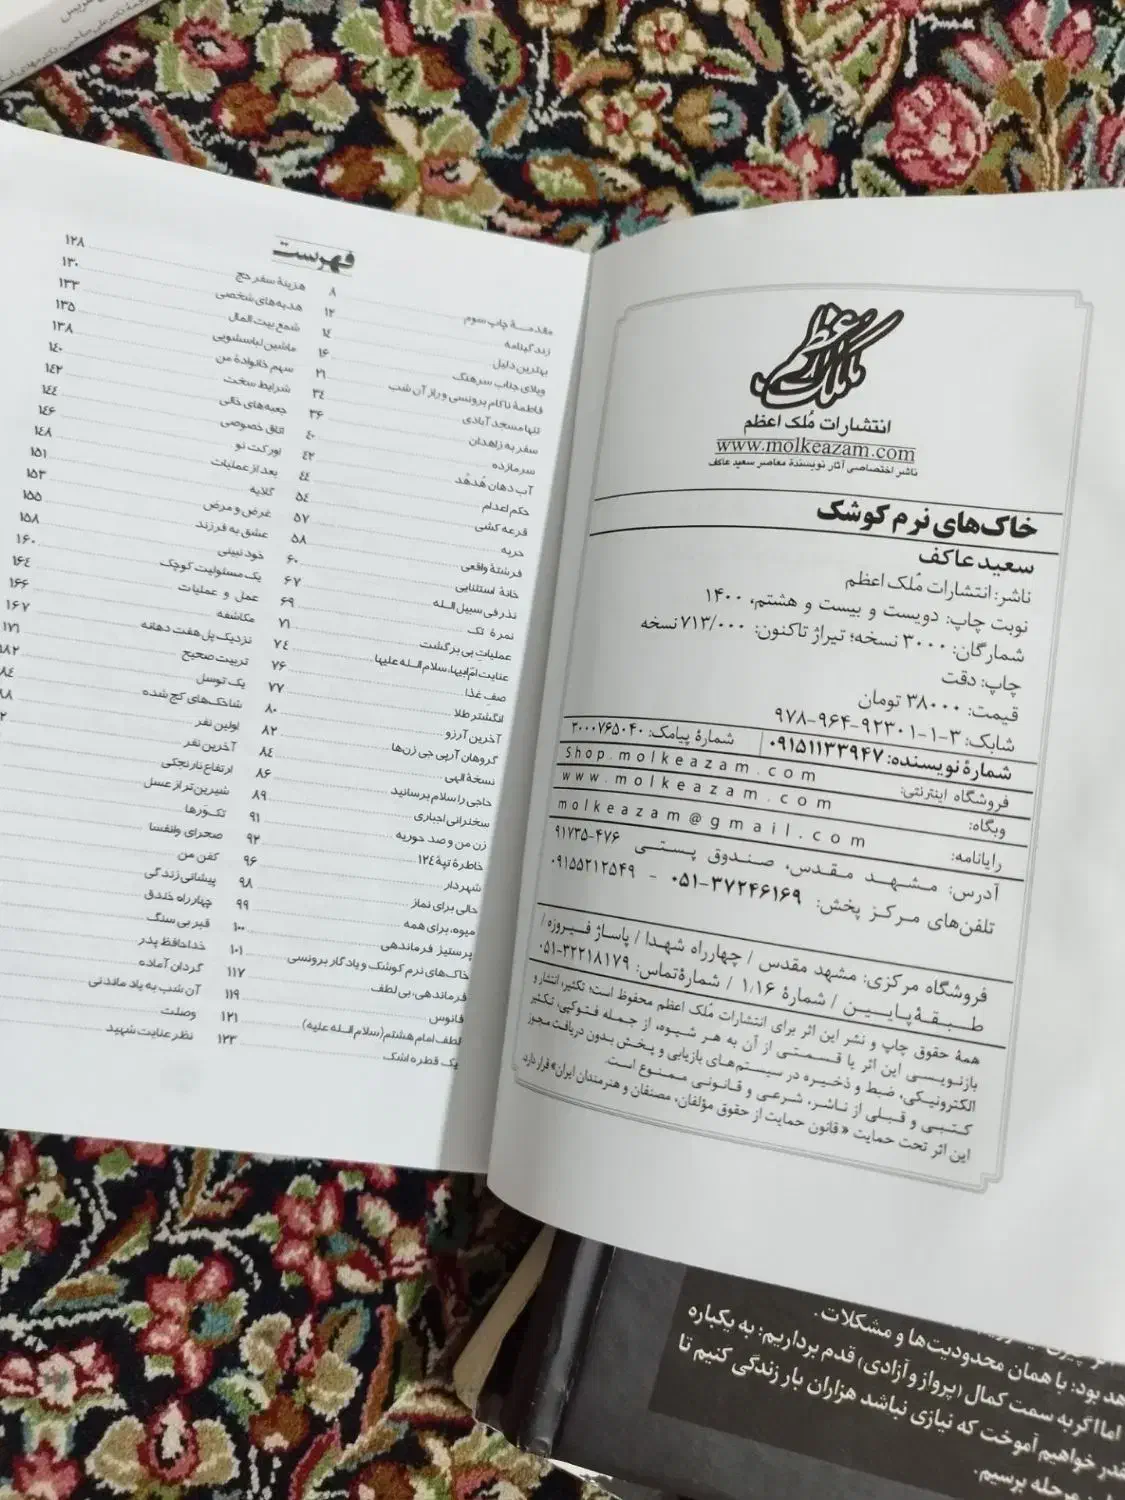 انتشارات مُلک اعظم
www.molkeazam.com
ناشر اختصاصی آثار نویسندهٔ معاصر سعید عاکف
خاک‌های نرم کوشک
سعید عاکف
ناشر: انتشارات مُلک اعظم
نوبت چاپ: دویست و بیست و هشتم، ۱۴۰۰
شمارگان: ۳۰۰۰ نسخه؛ تیراژ تاکنون: ۷۱۳/۰۰۰ نسخه
چاپ: دقت
قیمت: ۳۸۰۰۰ تومان
شابک: ۳-۱-۹۲۳۰۱-۹۶۴-۹۷۸
شمارهٔ نویسنده: ۰۹۱۵۱۱۳۳۹۴۷ شمارهٔ پیامک: ۳۰۰۰۷۶۵۰۴۰
فروشگاه اینترنتی: shop.molkeazam.com
وبگاه: www.molkeazam.com
رایانامه: molkeazam@gmail.com
آدرس: مشهد مقدس، صندوق پستی ۴۷۶-۹۱۷۳۵
تلفن‌های مرکز پخش: ۳۷۲۴۶۱۶۹-۰۵۱ - ۰۹۱۵۵۲۱۲۵۴۹
فروشگاه مرکزی: مشهد مقدس / چهارراه شهدا / پاساژ فیروزه /
طبقهٔ پایین / شمارهٔ ۱،۱۶ / شمارهٔ تماس: ۳۲۲۱۸۱۷۹-۰۵۱
همهٔ حقوق چاپ و نشر این اثر برای انتشارات مُلک اعظم محفوظ است؛ تکثیر، انتشار و
بازنویسی این اثر یا قسمتی از آن به هر شیوه، از جمله فتوکپی، تکثیر
الکترونیکی، ضبط و ذخیره در سیستم‌های بازیابی و پخش بدون دریافت مجوز
کتبی و قبلی از ناشر، شرعی و قانونی ممنوع است.
این اثر تحت حمایت «قانون حمایت از حقوق مؤلفان، مصنفان و هنرمندان ایران» قرار دارد.
فهرست
مقدمهٔ چاپ سوم ۸
زندگینامه ۱۲
بهترین دلیل ۱۴
ویلای جناب سرهنگ ۱۶
فاطمهٔ ناکام برونسی و راز آن شب ۲۱
تنها مسجد آبادی ۳۴
سفر به زاهدان ۳۶
سرمازده ۴۰
آب دهان هُدهُد ۴۲
حکم اعدام ۴۴
قرعه کشی ۵۴
حربه ۵۷
فرشتهٔ واقعی ۵۸
خانهٔ استثنایی ۶۰
نذر فی سبیل الله ۶۷
نمرهٔ تک ۶۹
عملیات بی برگشت ۷۱
عنایت امّ‌ابیها، سلام الله علیها ۷۴
صف غذا ۷۶
انگشتر طلا ۷۷
آخرین آرزو ۸۰
گروهان آرپی جی زن‌ها ۸۲
نسخهٔ الهی ۸۴
حاجی را سلام برسانید ۸۶
سخنرانی اجباری ۸۹
زن من و صد حوریه ۹۱
خاطرهٔ تپهٔ ۱۲۴ ۹۲
شهردار ۹۶
حالی برای نماز ۹۸
میوه، برای همه ۹۹
پرستیژ فرماندهی ۱۰۰
خاک‌های نرم کوشک و یادگار برونسی ۱۰۱
فرماندهی، بی لطف ۱۱۷
فانوس ۱۱۹
لطف امام هشتم (سلام الله علیه) ۱۲۱
یک قطره اشک ۱۲۳
هزینهٔ سفر حج ۱۲۸
هدیه‌های شخصی ۱۳۰
شمع بیت المال ۱۳۳
ماشین لباسشویی ۱۳۵
سهم خانوادهٔ من ۱۳۸
شرایط سخت ۱۴۰
جعبه‌های خالی ۱۴۲
اتاق خصوصی ۱۴۴
اورکت نو ۱۴۶
بعد از عملیات ۱۴۸
گلایه ۱۵۱
غرض و مرض ۱۵۳
عشق به فرزند ۱۵۵
خود نبینی ۱۵۸
یک مسئولیت کوچک ۱۶۰
عمل و عملیات ۱۶۴
مکاشفه ۱۶۶
نزدیک پل هفت دهانه ۱۶۷
تربیت صحیح ۱۷۱
یک توسل
شاخک‌های کج شده
اولین نفر
آخرین نفر
ارتفاع نارنجکی
شیرین تر از عسل
تکوّرها
صحرای وانفسا
کفن من
پیشانی زندگی
چهارراه خندق
قبر بی سنگ
خداحافظ پدر
گردان آماده
آن شب به یاد ماندنی
وصلت
نظر عنایت شهید
هد بود: با همان محدودیت‌ها و مشکلات.
اما اگر به سمت کمال (پرواز و آزادی) قدم برداریم: به یکباره
خواهیم آموخت که نیازی نباشد هزاران بار زندگی کنیم تا
مرحله برسیم.